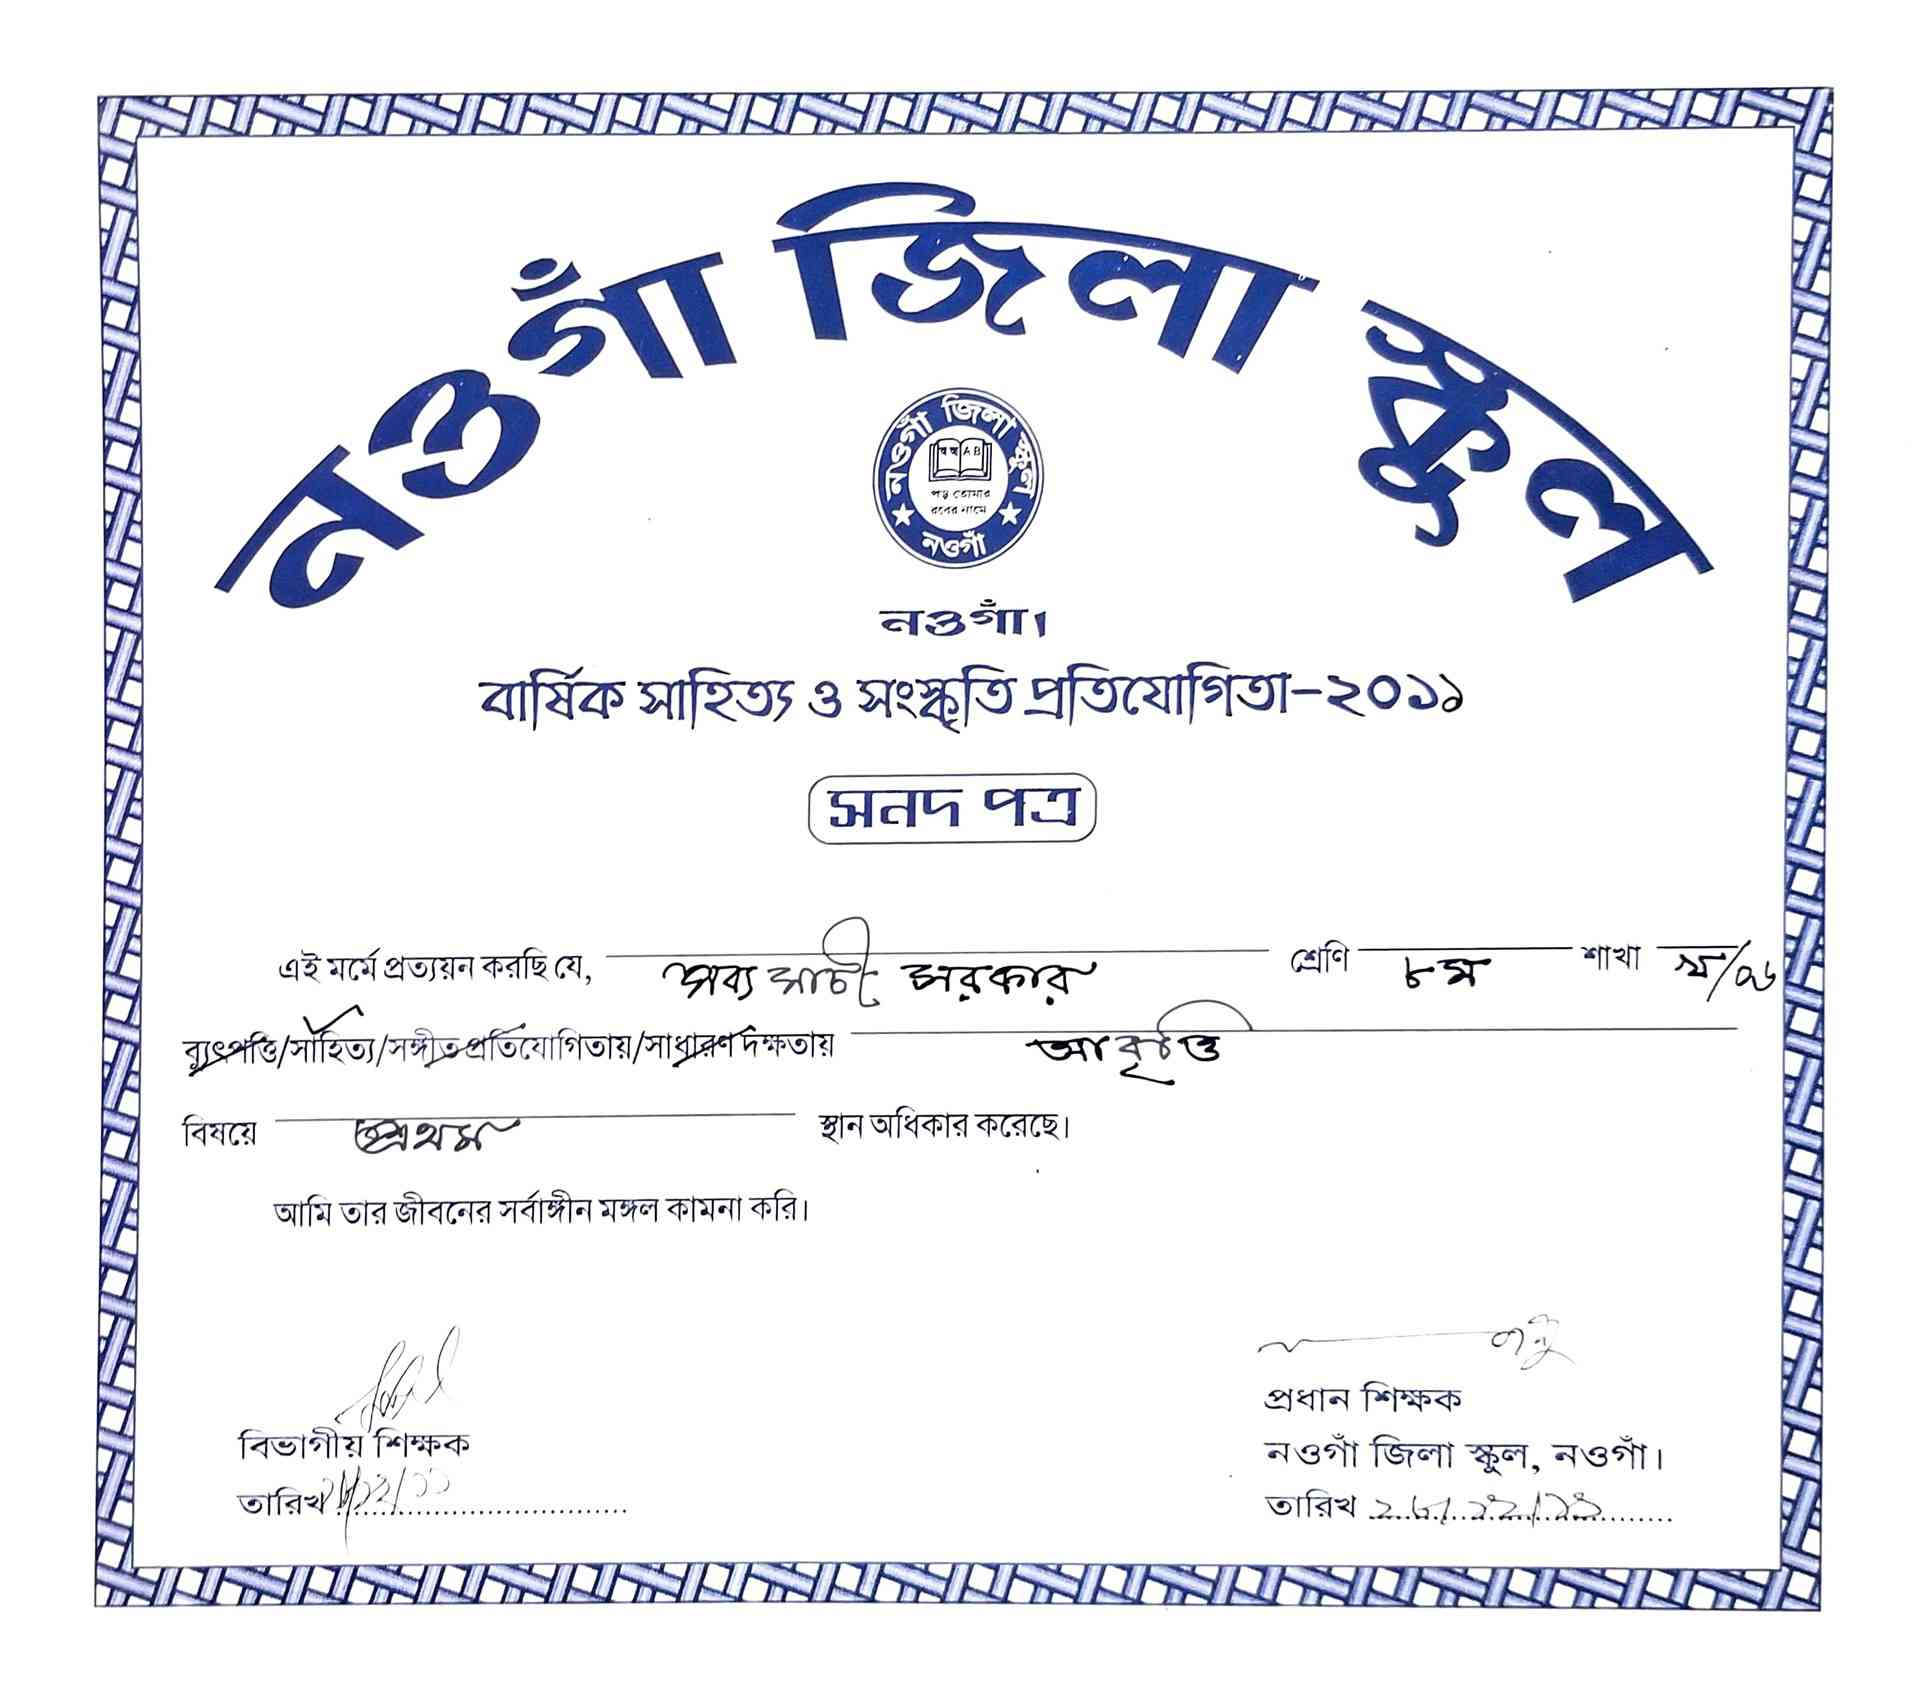 নওগাঁ জিলা স্কুল
নওগাঁ জিলা স্কুল
অ আ A B
পড় তোমার
রবের নামে
নওগাঁ
নওগাঁ।
বার্ষিক সাহিত্য ও সংস্কৃতি প্রতিযোগিতা-২০১১
সনদ পত্র
এই মর্মে প্রত্যয়ন করছি যে, সব্যসাচী সরকার শ্রেণি ৮ম শাখা
ব্যুৎপত্তি/সাহিত্য/সঙ্গীত প্রতিযোগিতায়/সাধারণ দক্ষতায় আবৃত্তি
বিষয়ে প্রথম স্থান অধিকার করেছে।
আমি তার জীবনের সর্বাঙ্গীন মঙ্গল কামনা করি।
বিভাগীয় শিক্ষক
তারিখ
প্রধান শিক্ষক
নওগাঁ জিলা স্কুল, নওগাঁ।
তারিখ ২৮/১২/১১